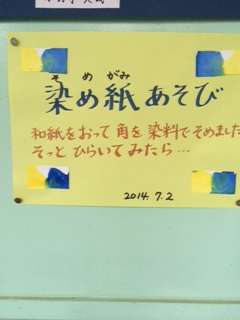 さ めがみ
染め紙あそび
和紙をおって角を染料でそめました
そっとひらいてみたら…
2014.7.2